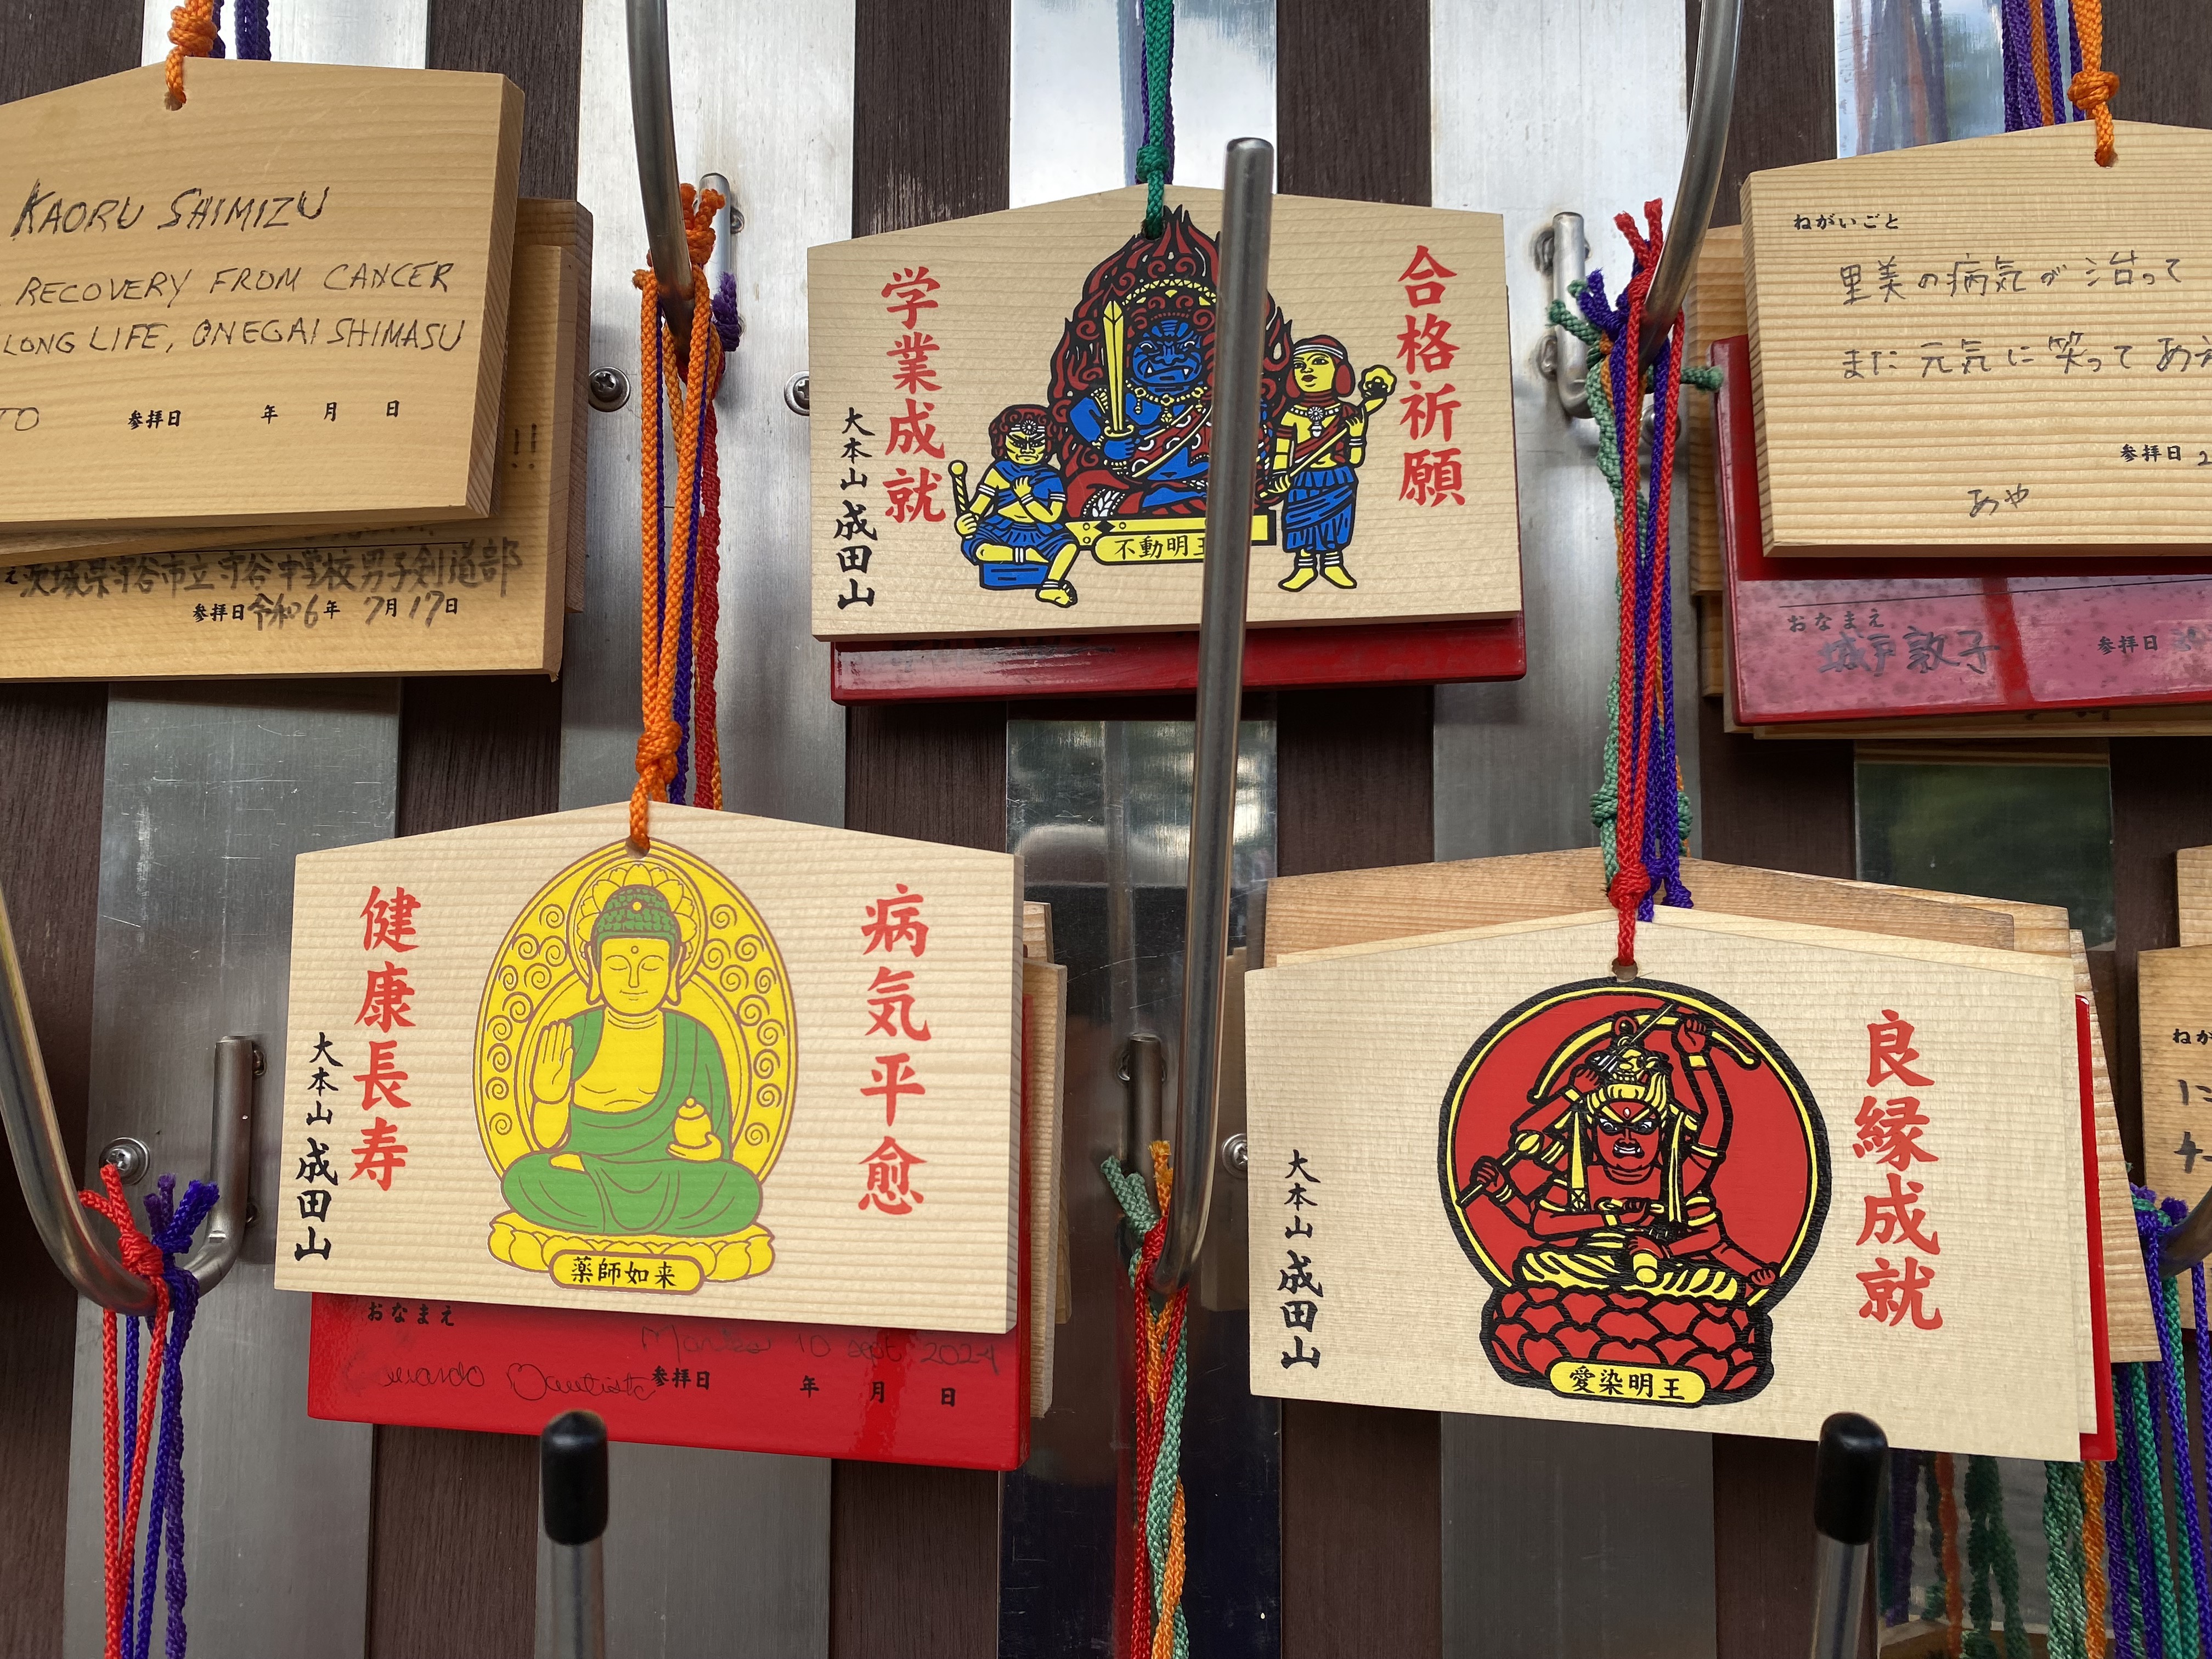 KAORU SHIMIZU
RECOVERY FROM CANCER
LONG LIFE, ONEGAI SHIMASU
TO
参拝日 年 月 日
!!
茨城県守谷市立守谷中学校男子剣道部
参拝日 令和6年 7月17日
合格祈願
学業成就
大本山 成田山
不動明王
ねがいごと
里美の病気が治って
また元気に笑って
参拝日 2
あや
おなまえ
城戸敦子
参拝日
病気平愈
健康長寿
大本山 成田山
薬師如来
おなまえ
10 sept 2024
参拝日 年 月 日
良縁成就
大本山 成田山
愛染明王
ねが
に